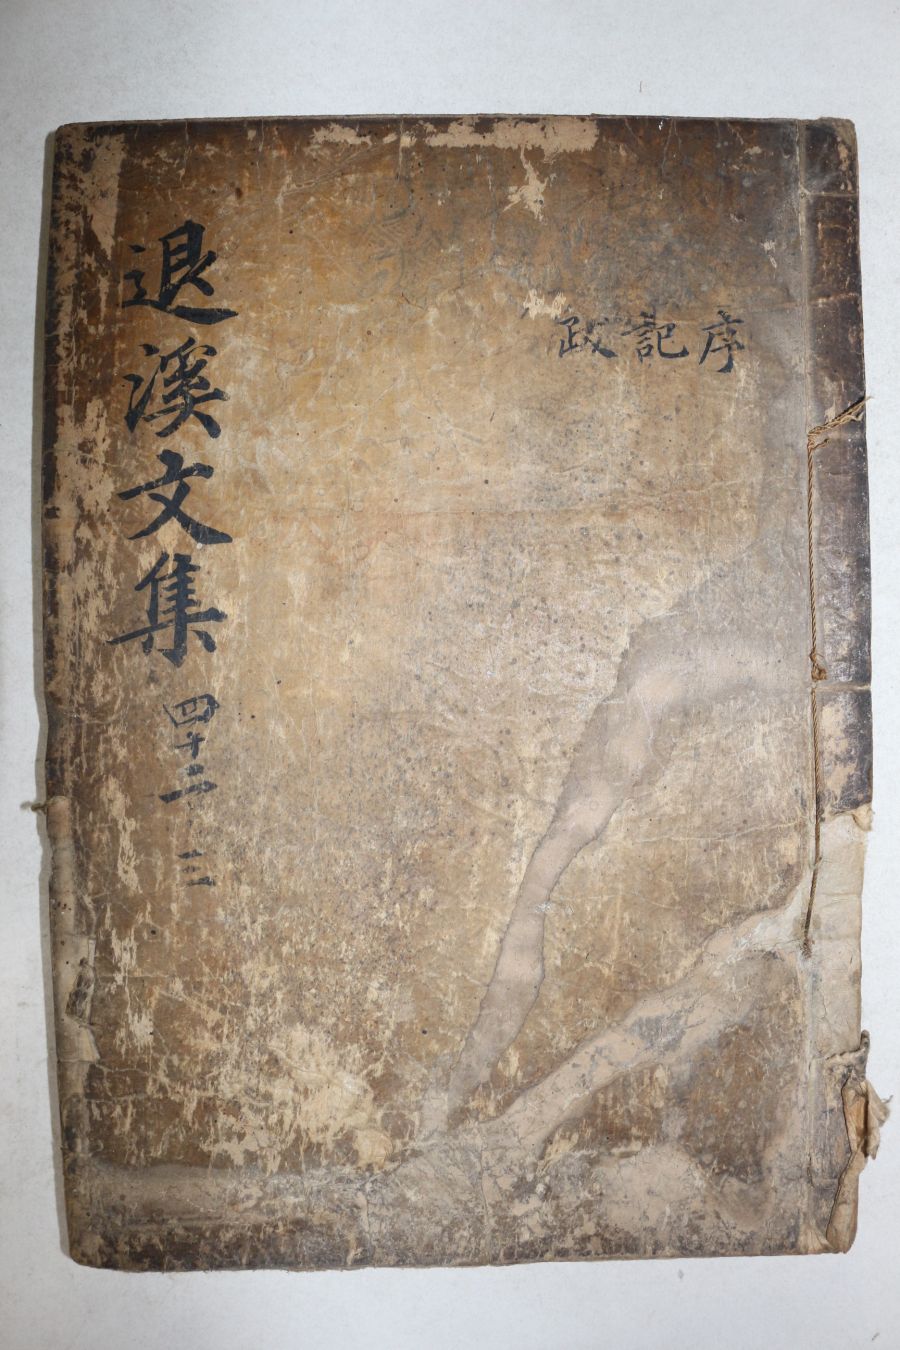 序記跋
退溪文集 四十二 三